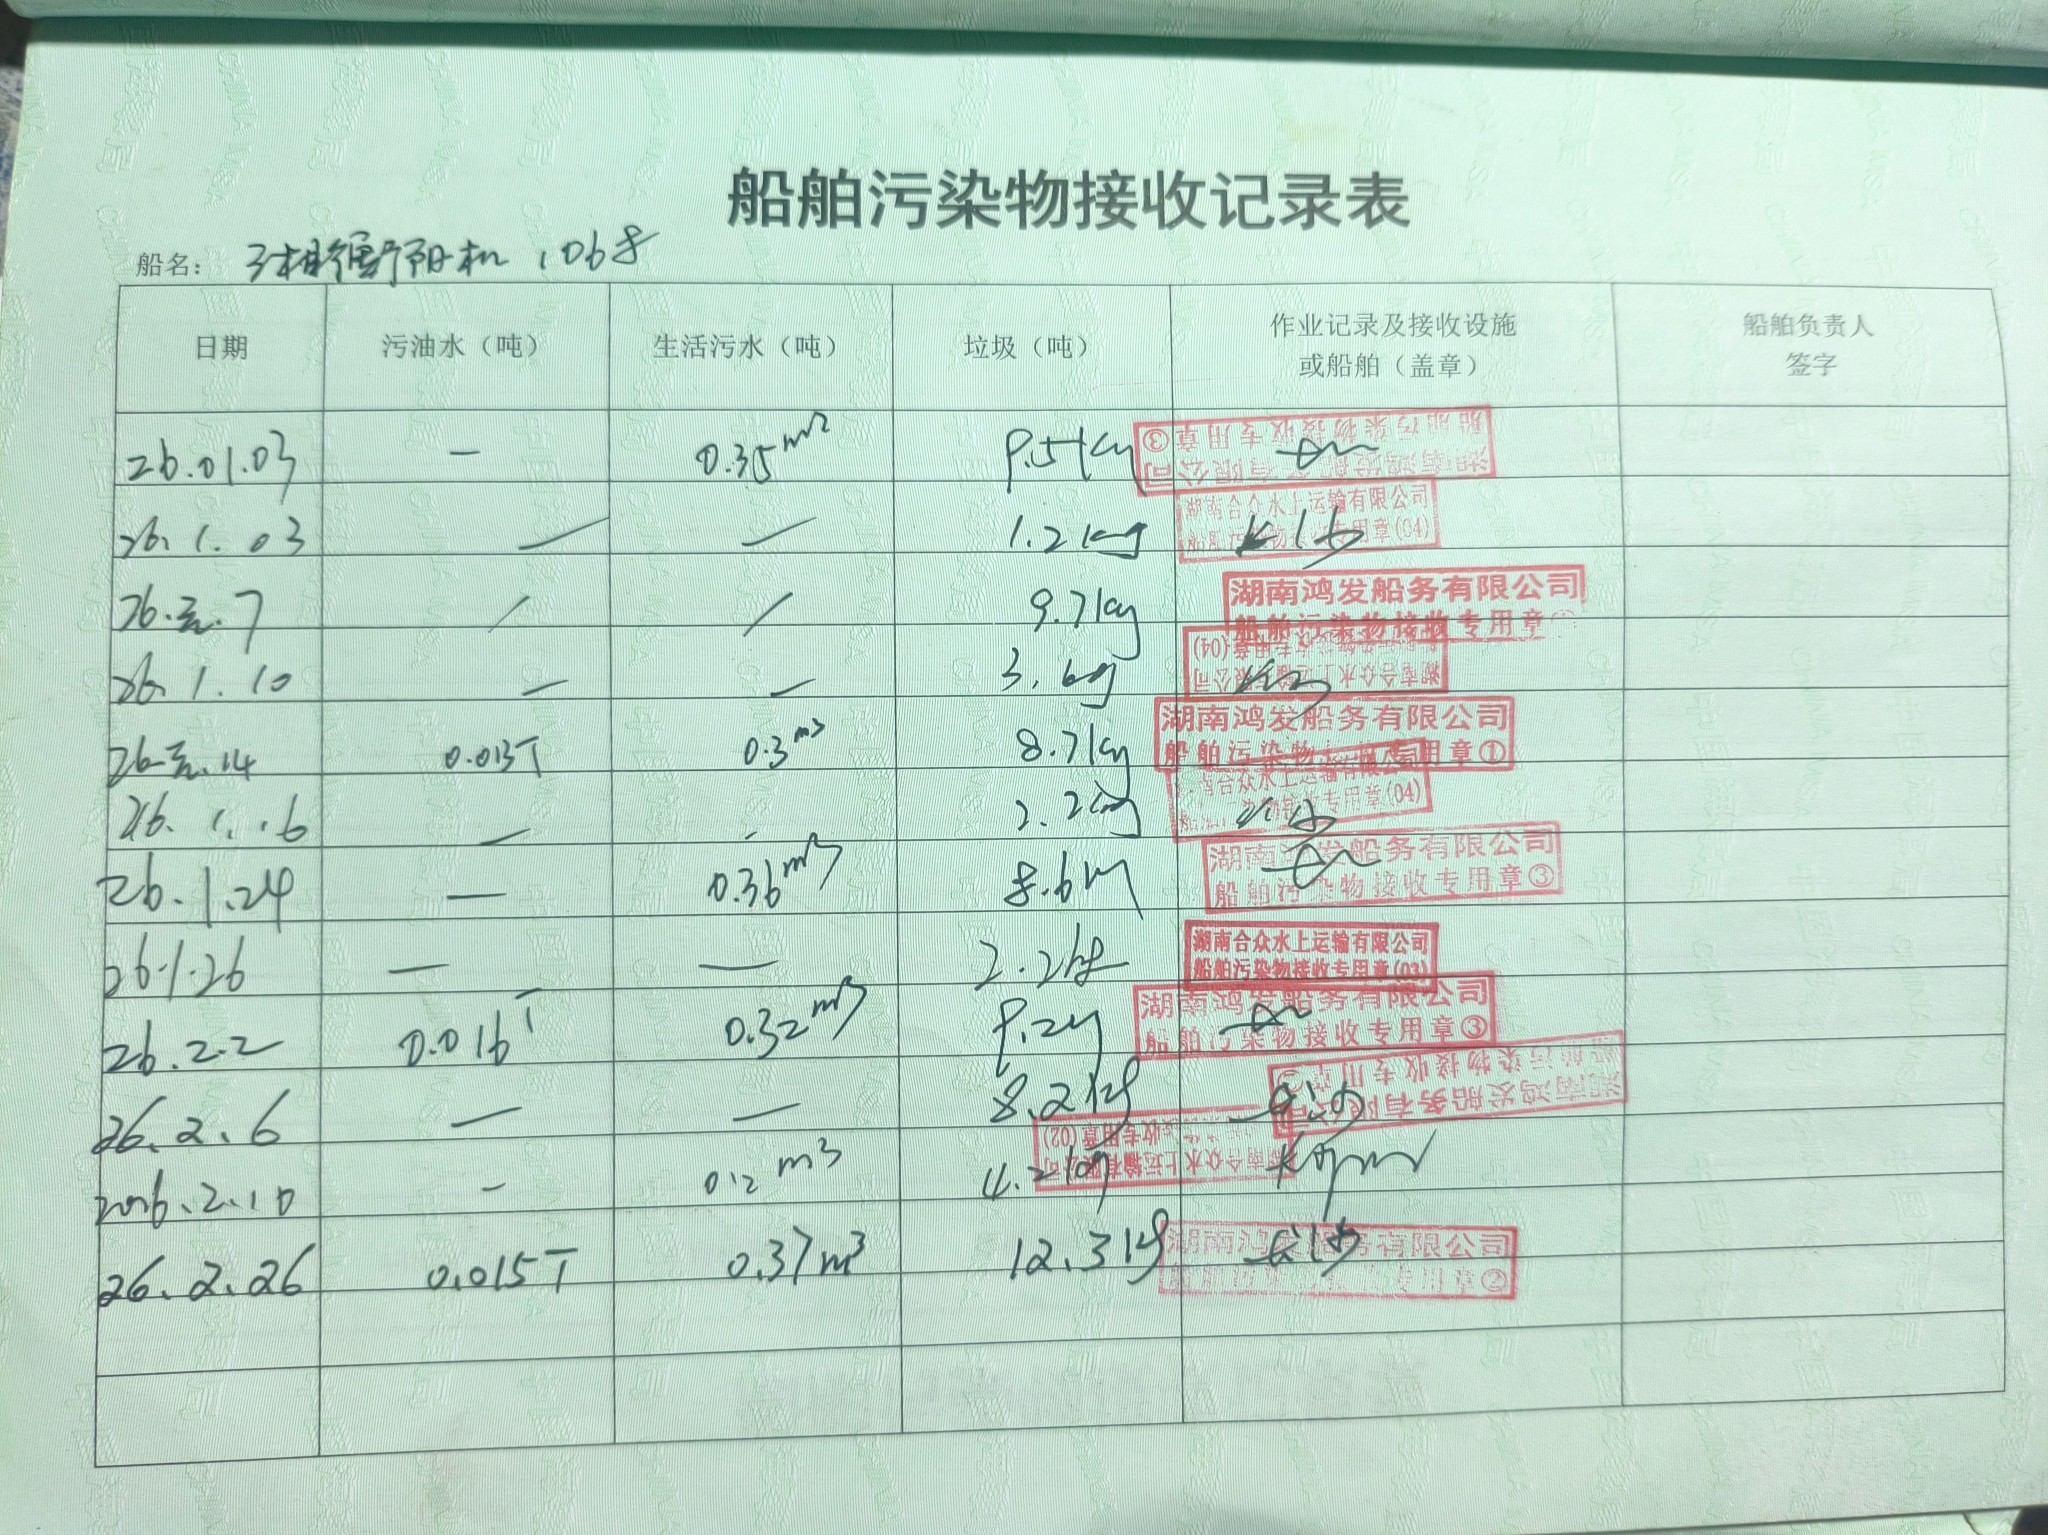 船舶污染物接收记录表
船名： 机 106号
日期 污油水（吨） 生活污水（吨） 垃圾（吨） 作业记录及接收设施 或船舶（盖章） 船舶负责人 签字
26.01.03 — 0.35 9.5kg 湖南鸿发船务有限公司 船舶污染物接收专用章③
26.1.03 — — 1.2kg 湖南合众水上运输有限公司 船舶污染物接收专用章(04)
26.元.7 / / 9.7kg 湖南鸿发船务有限公司 船舶污染物接收专用章
26.1.10 — — 3.6 湖南合众水上运输有限公司 专用章(04)
26.元.14 0.013T 0.3m³ 8.7kg 湖南鸿发船务有限公司 船舶污染物 专用章①
26.1.16 — 2.2kg 合众水上运输有限公司 专用章(04)
26.1.24 — 0.36m³ 8.6 湖南鸿发船务有限公司 船舶污染物接收专用章③
26.1.26 — — 2.2kg 湖南合众水上运输有限公司 船舶污染物接收专用章(03)
26.2.2 0.016T 0.32m³ 9.2 湖南鸿发船务有限公司 船舶污染物接收专用章③
26.2.6 — — 8.2kg 湖南鸿发船务有限公司 船舶污染物接收专用章
2026.2.10 - m³ 4.2kg 湖南合众水上运输有限公司 接收专用章(02)
26.2.26 0.015T 0.37m³ 12.3kg 湖南鸿发船务有限公司 船舶污染物接收专用章②